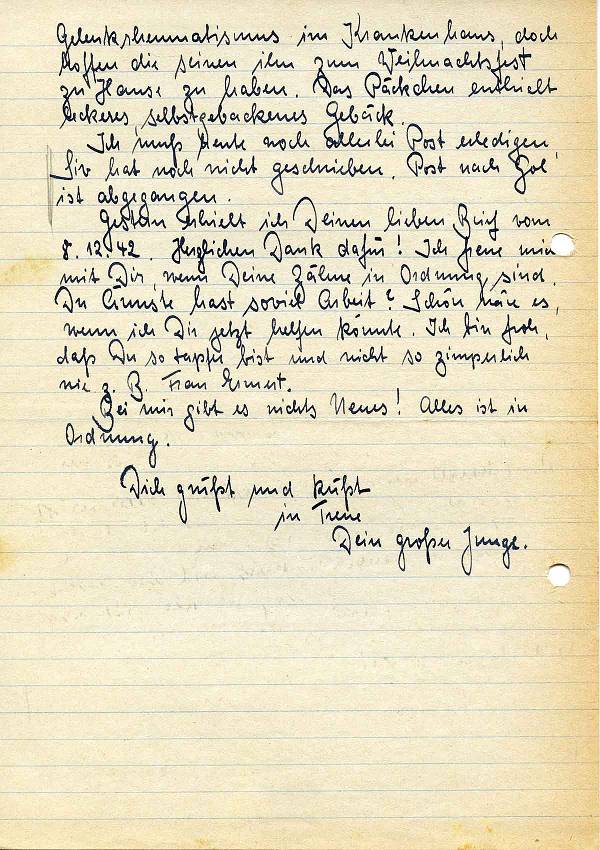 Gelenksrheumatismus im Krankenhaus, doch
hoffen die seinen ihn zum Weihnachtsfest
zu Hause zu haben. Das Päckchen enthielt
leckeres, selbstgebackenes Gebäck.
Ich muß heute noch allerlei Post erledigen,
Siv hat noch nicht geschrieben. Post nach
ist abgegangen.
Gestern erhielt ich Deinen lieben Brief vom
8.12.42. Herzlichen Dank dafür! Ich freue mich
mit Dir, wenn Deine Zähne in Ordnung sind.
Du Ärmste hast soviel Arbeit? Schön wäre es,
wenn ich Dir jetzt helfen könnte. Ich bin froh,
daß Du so tapfer bist und nicht so zimperlich
wie z. B. Frau
Bei mir gibt es nichts Neues! Alles ist in
Ordnung.
Dich grüßt und küßt
in Treue
Dein großer Junge.